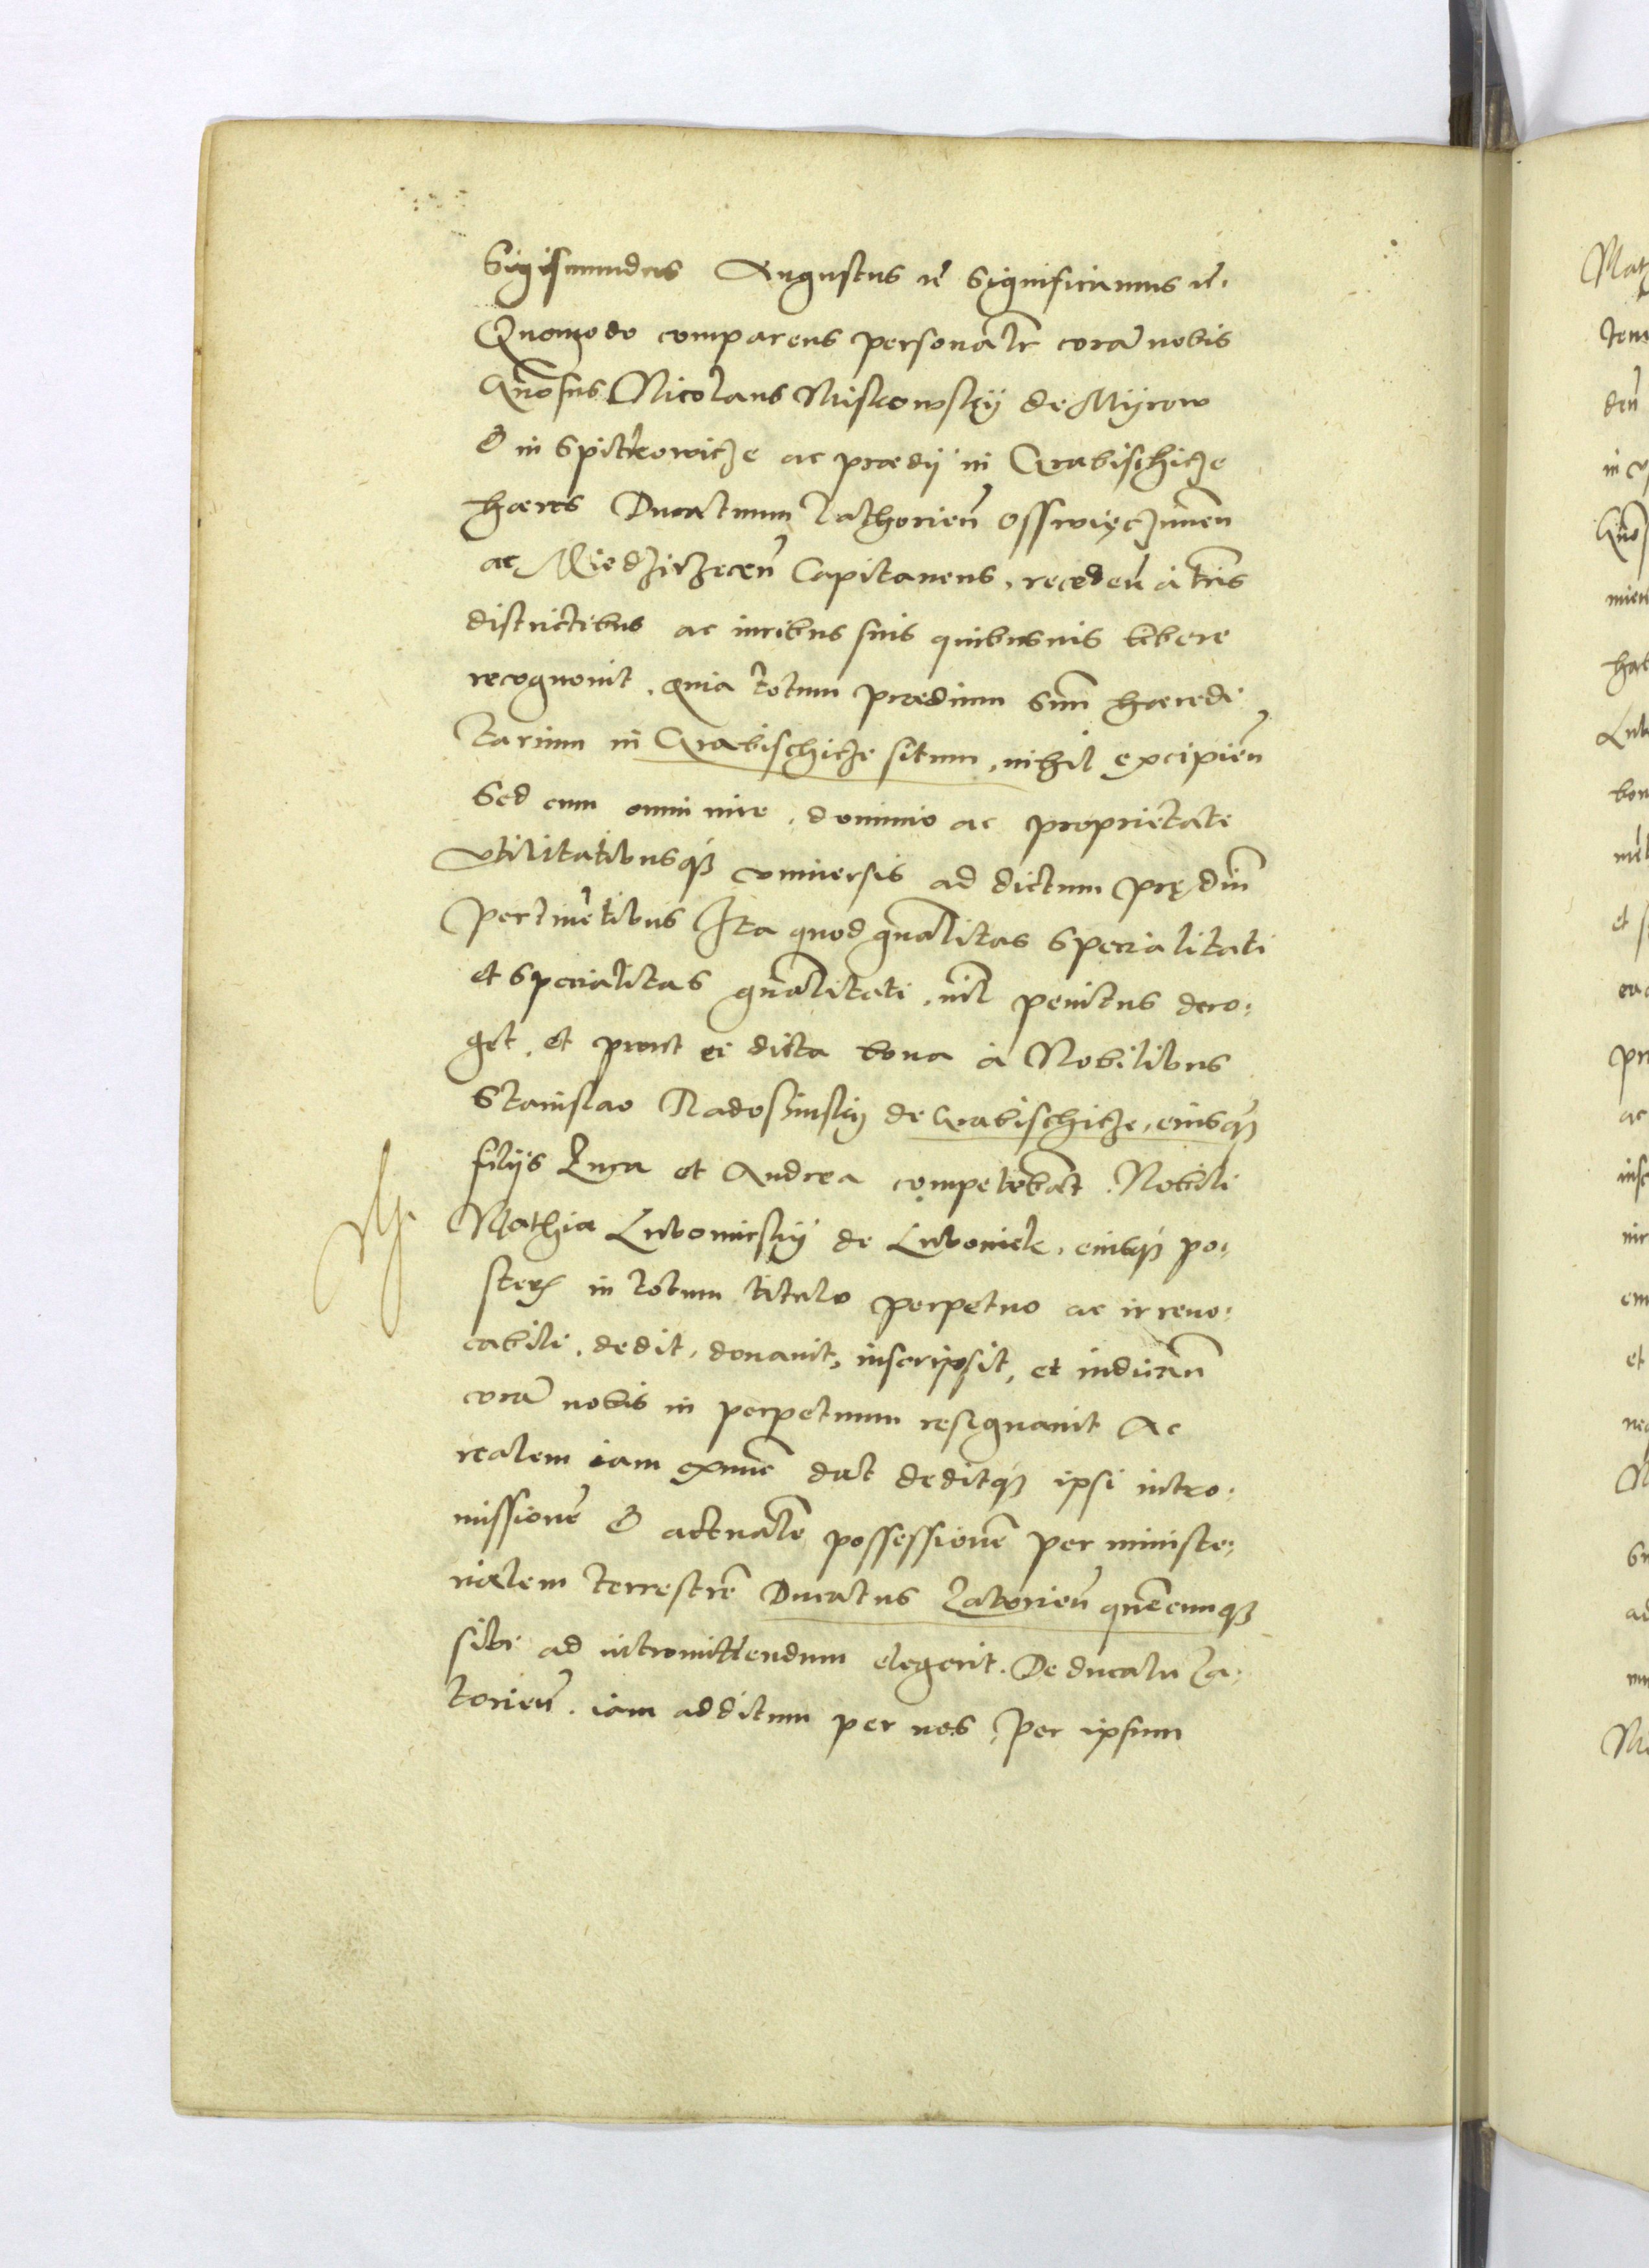 Sigismundus Augustus etc̃ Significamus etc̃.
Quomodo comparens personalr̃ corã nobis
Gñosus Nicolaus Miskowskÿ de Mÿrow
& in Spitkowicze ac prædij in Grabischicze
hæres Ducatuum Zathorień Osswięczimeń
ac Miedzirzeceń Capitaneus, recedeń à tr̃is
districtibus ac iuribus suis quibusuis libere
recognouit, quia totum prædium suũ hæredi
tarium in Grabischicze situm, nihil excipień
Sed cum omni iure, dominio ac proprietate
vtilitatibusq̃ vniuersis ad dictum prędiũ
pertinẽtibus Ita quod gñalitas specialitati
et specialitas gñalitati, nil penitus dero:
get, et prout ei dicta bona à Nobilibus
Stanislao Radoszinskÿ de Grabischicze, eiusq̃
filijs Luca et Andrea competebãt. Nobili
Mathiæ Lubomirskÿ de Lubomierz, eiusq̃ po:
steris in totum titulo perpetuo ac irreuo:
cabili, dedit, donauit, inscripsit, et in
corã nobis in perpetuum resignauit Ac
realem iam exnũc dat deditq̃ ipsi intro:
missionẽ & actualẽ possessionẽ per ministe:
rialem terrestrẽ Ducatus Zatorień quẽcunq̃
sibi ad intromittendum elegerit. De ducatu Za:
torień. iam additum per nos, per ipsum